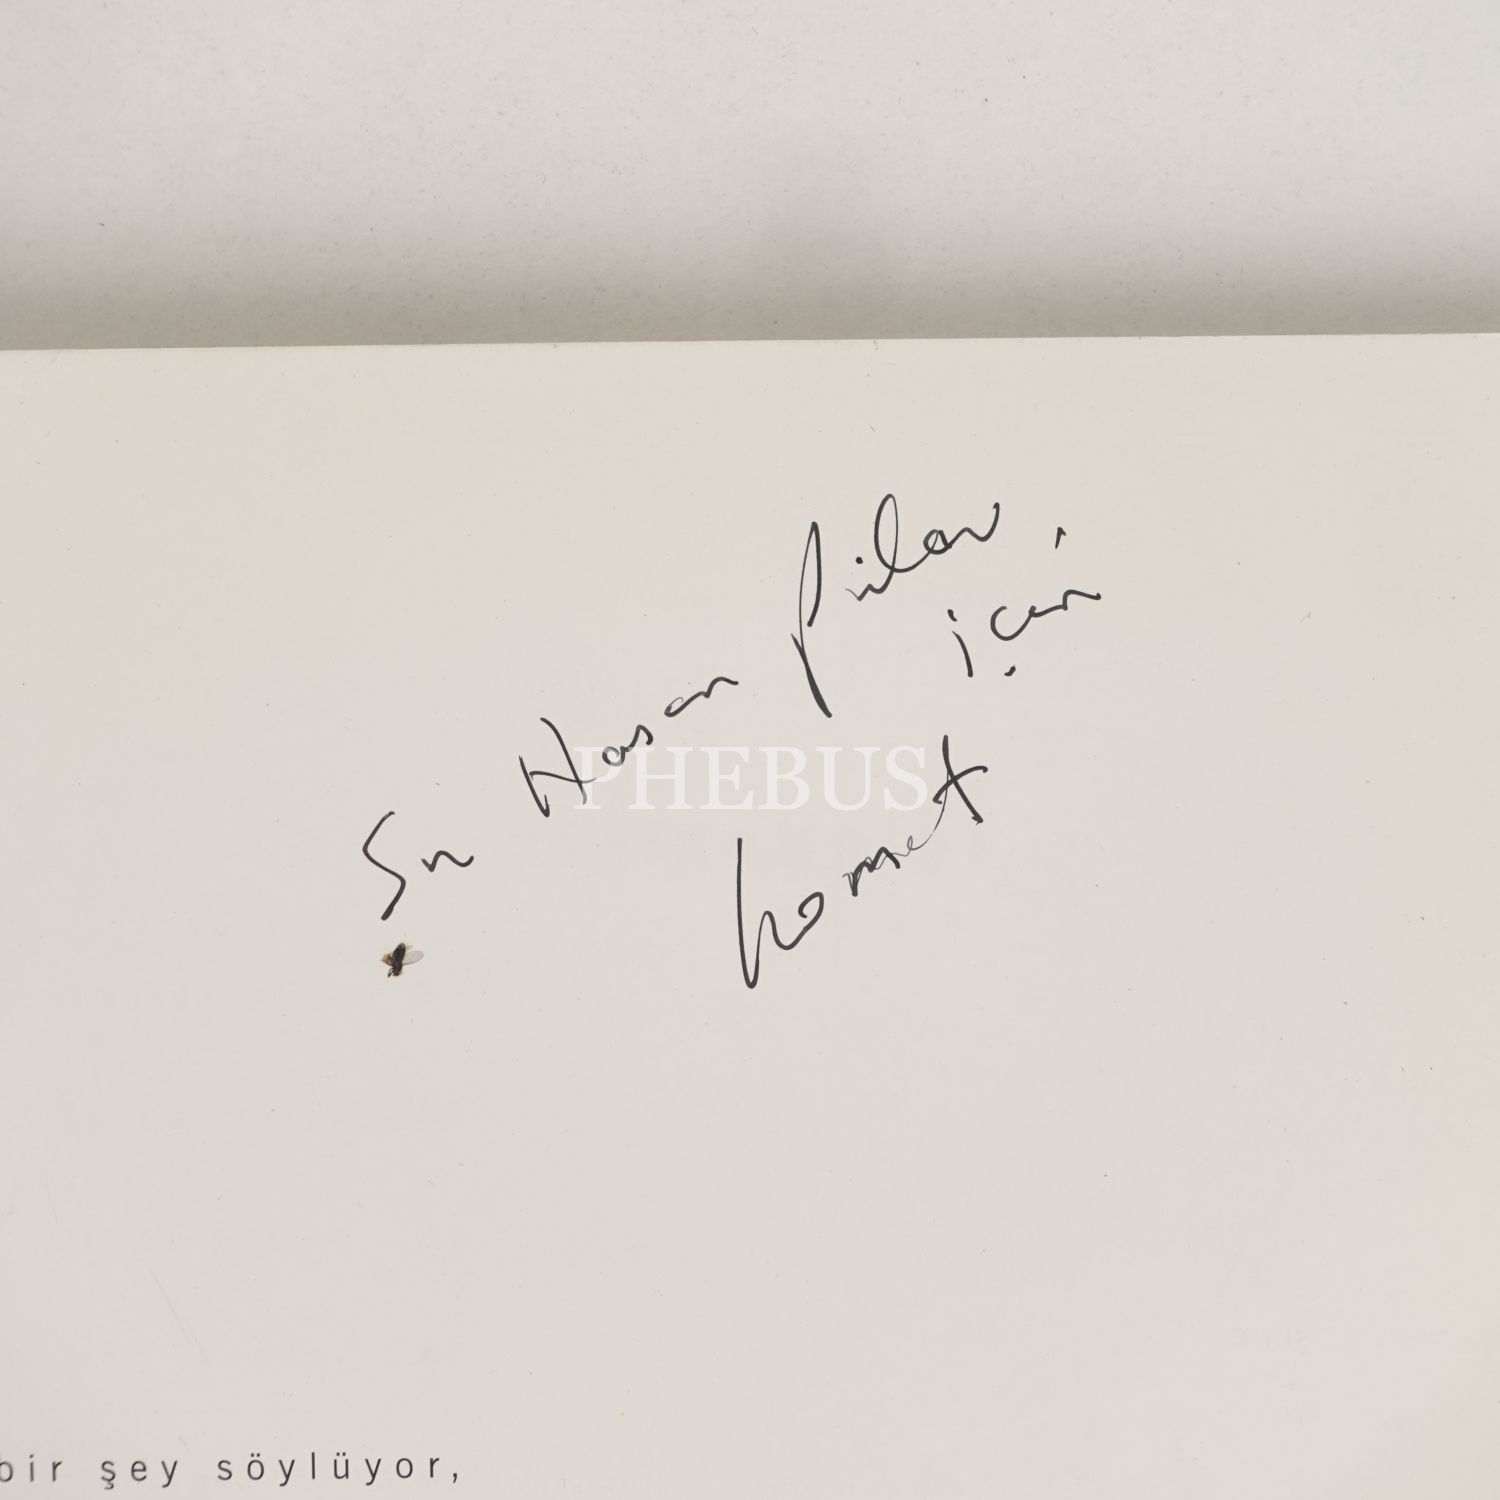 Sn Hasan Pilav
için
Komet
PHEBUS
bir şey söylüyor,